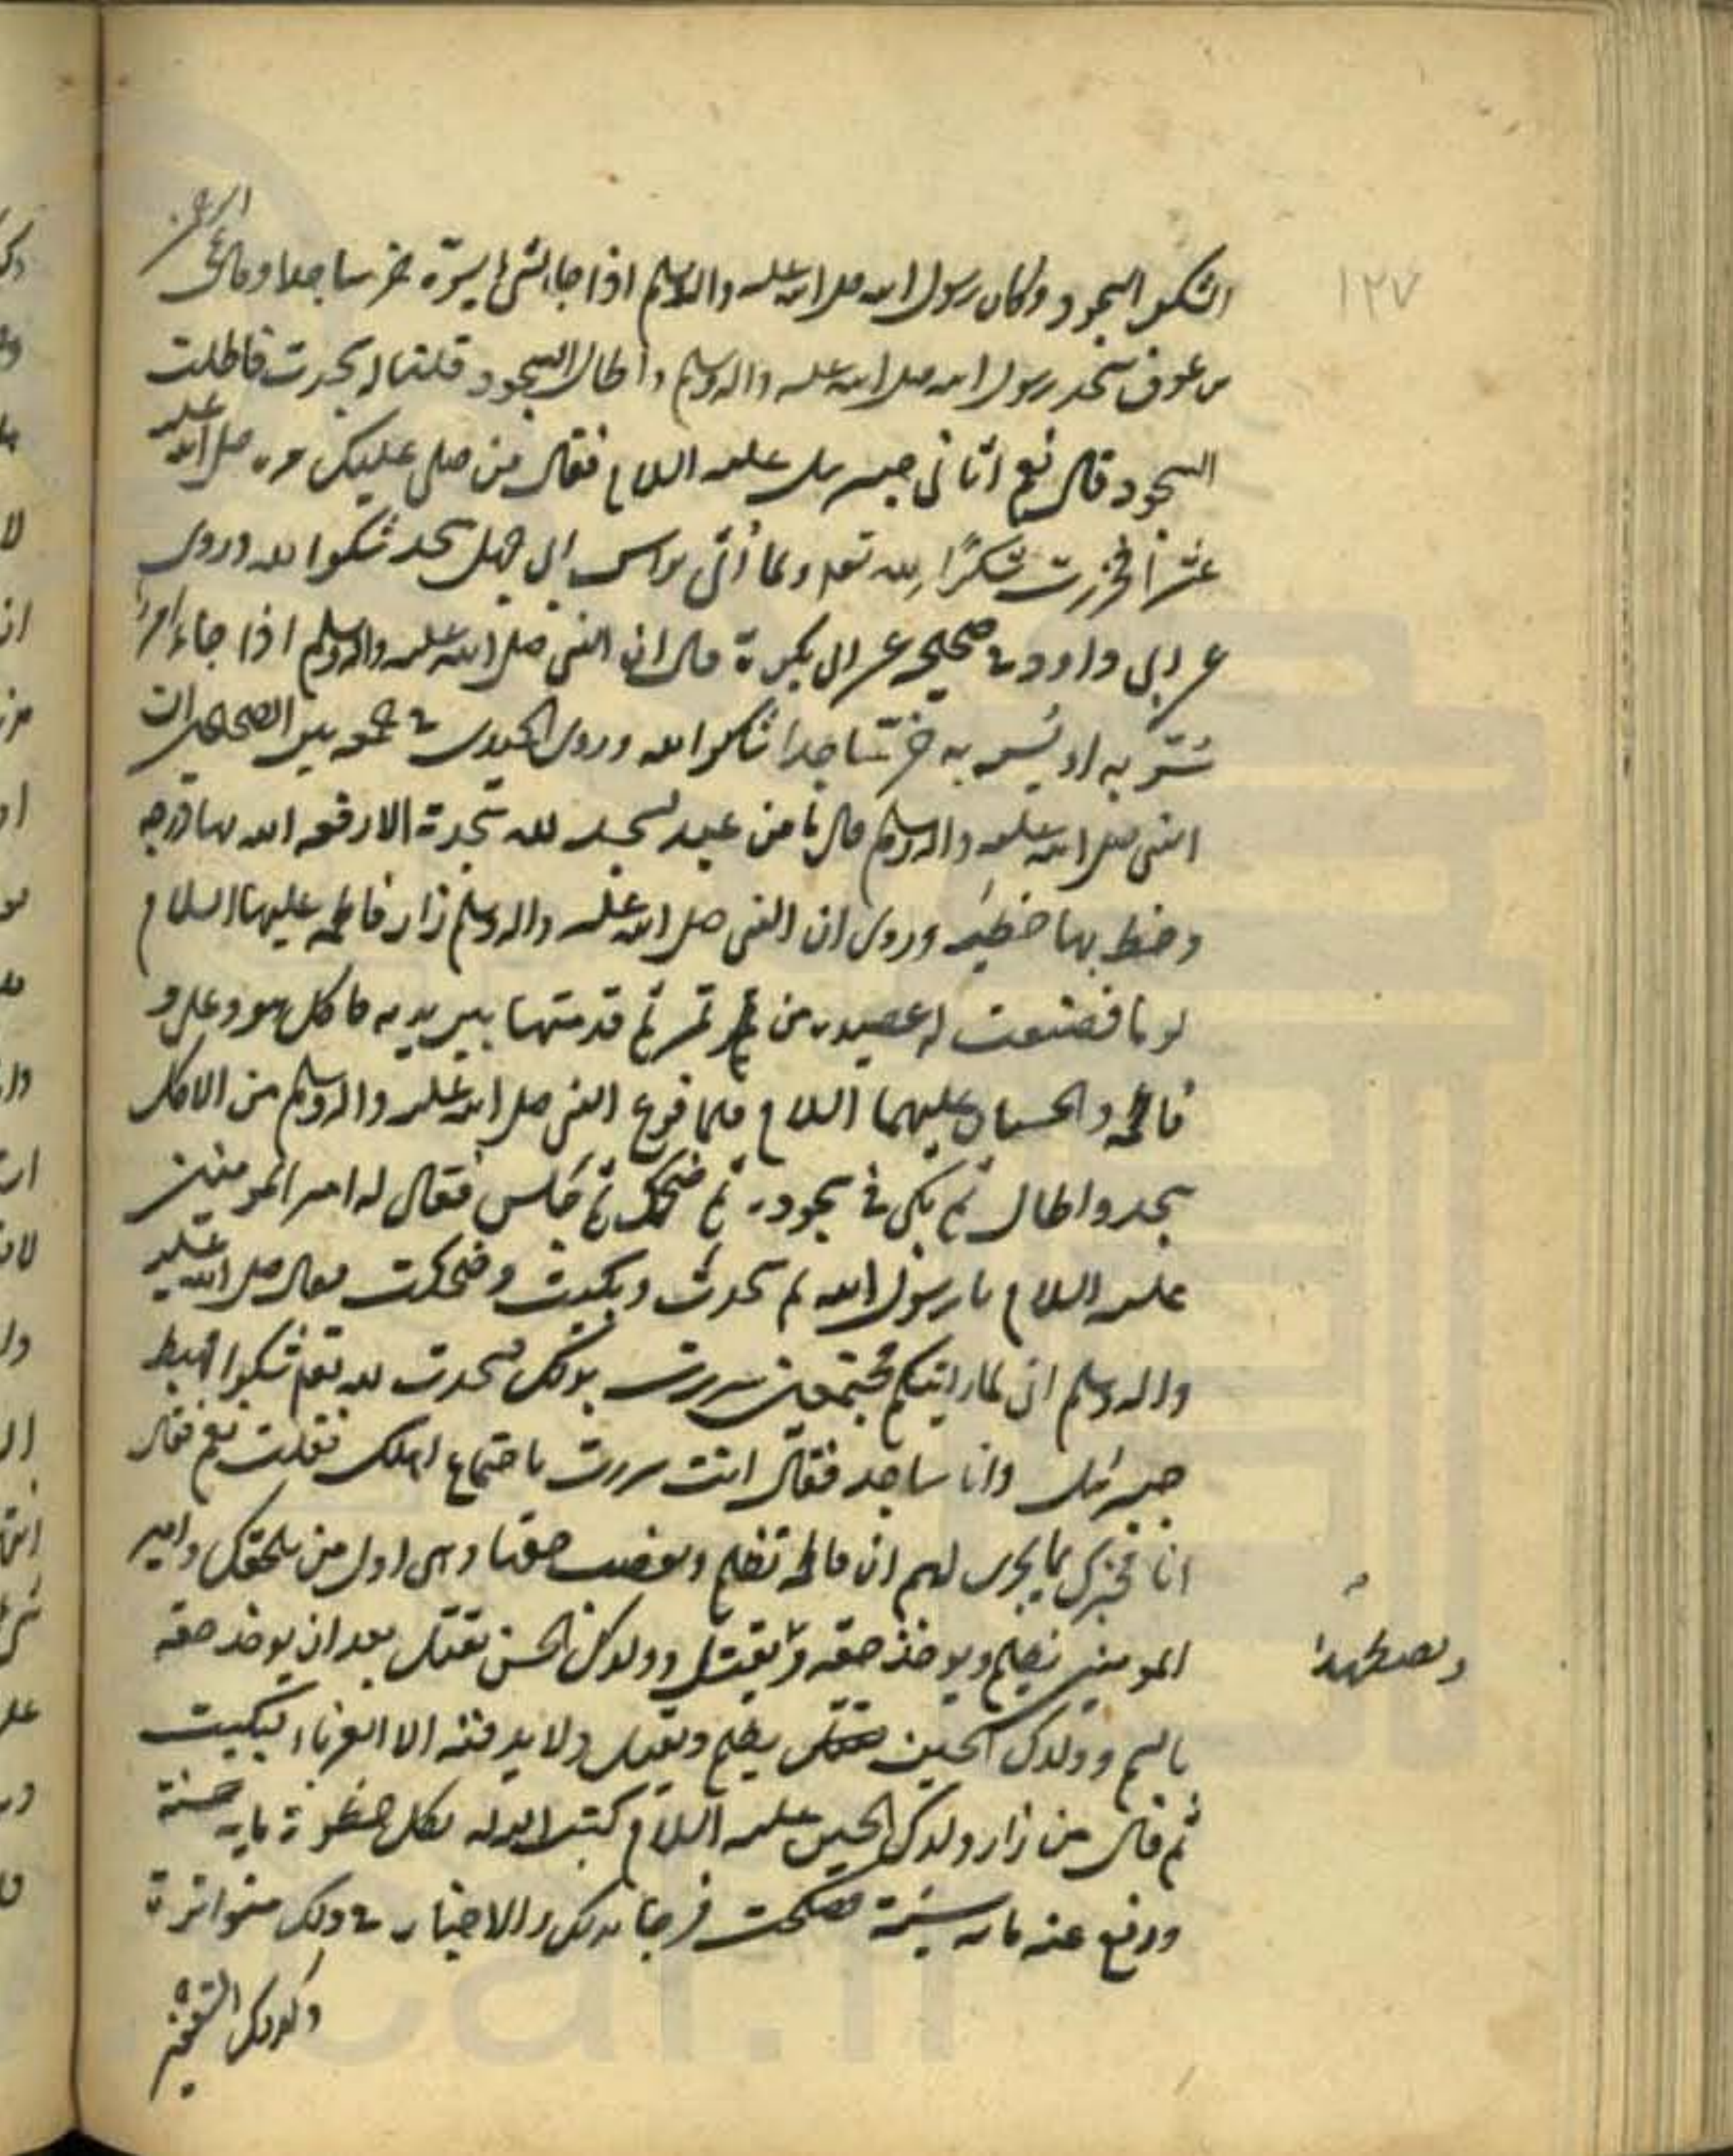 ١٢٧
الشكر السجود وكان رسول الله صلى الله عليه واله وسلم اذا جاءه شئ يسره خر ساجدا وقال
بن عوف سجد رسول الله صلى الله عليه واله وسلم واطال السجود قلنا له سجدت فاطلت
السجود قال نعم اتاني جبرئيل عليه السلام فقال من صلى عليك مرة صلى الله عليه
عشرا فخررت شكرًا لله تعالى ولما أتى براس ابي جهل سجد شكرا لله وروى
عن ابي داود في صحيحه عن ابي بكرة قال ان النبي صلى الله عليه واله وسلم اذا جاءه امر
يسر به او بُشر به خر ساجدا شاكرا لله وروى الحميدى في الجمع بين الصحيحين ان
النبي صلى الله عليه واله وسلم قال ما من عبد يسجد لله سجدة الا رفعه الله بها درجه
وحط بها خطيئه وروى ان النبي صلى الله عليه واله وسلم زار فاطمه عليها السلام
يوما فصنعت له عصيده من تمر ثم قدمتها بين يديه فاكل هو وعلى و
فاطمه والحسنان عليهما السلام فلما فرغ النبي صلى الله عليه واله وسلم من الاكل
سجد واطال ثم بكى في سجوده ثم ضحك ثم جلس فقال له امير المومنين
عليه السلام يا رسول الله لم سجدت وبكيت وضحكت فقال صلى الله عليه
واله وسلم انى لما رايتكم مجتمعين سررت بذلك فسجدت لله تعالى شكرا فهبط
جبرئيل وانا ساجد فقال انت سررت باجتماع اهلك فقلت نعم فقال
انا مخبرك بما يجرى لهم ان فاطمه تظلم وتغصب حقها وهى اول من يلحقك وامير
المومنين يظلم ويوخذ حقه ويقتل وولدك الحسن يقتل بعد ان يوخذ حقه
ويضطهد
بالسم وولدك الحسين يظلم ويقتل ولا يدفنه الا الغرباء فبكيت
ثم قال من زار ولدك الحسين عليه السلام كتب الله له بكل خطوة مايه حسنة
ورفع عنه مائه سيئة فضحكت فرحا بذلك والاخبار في ذلك متواترة